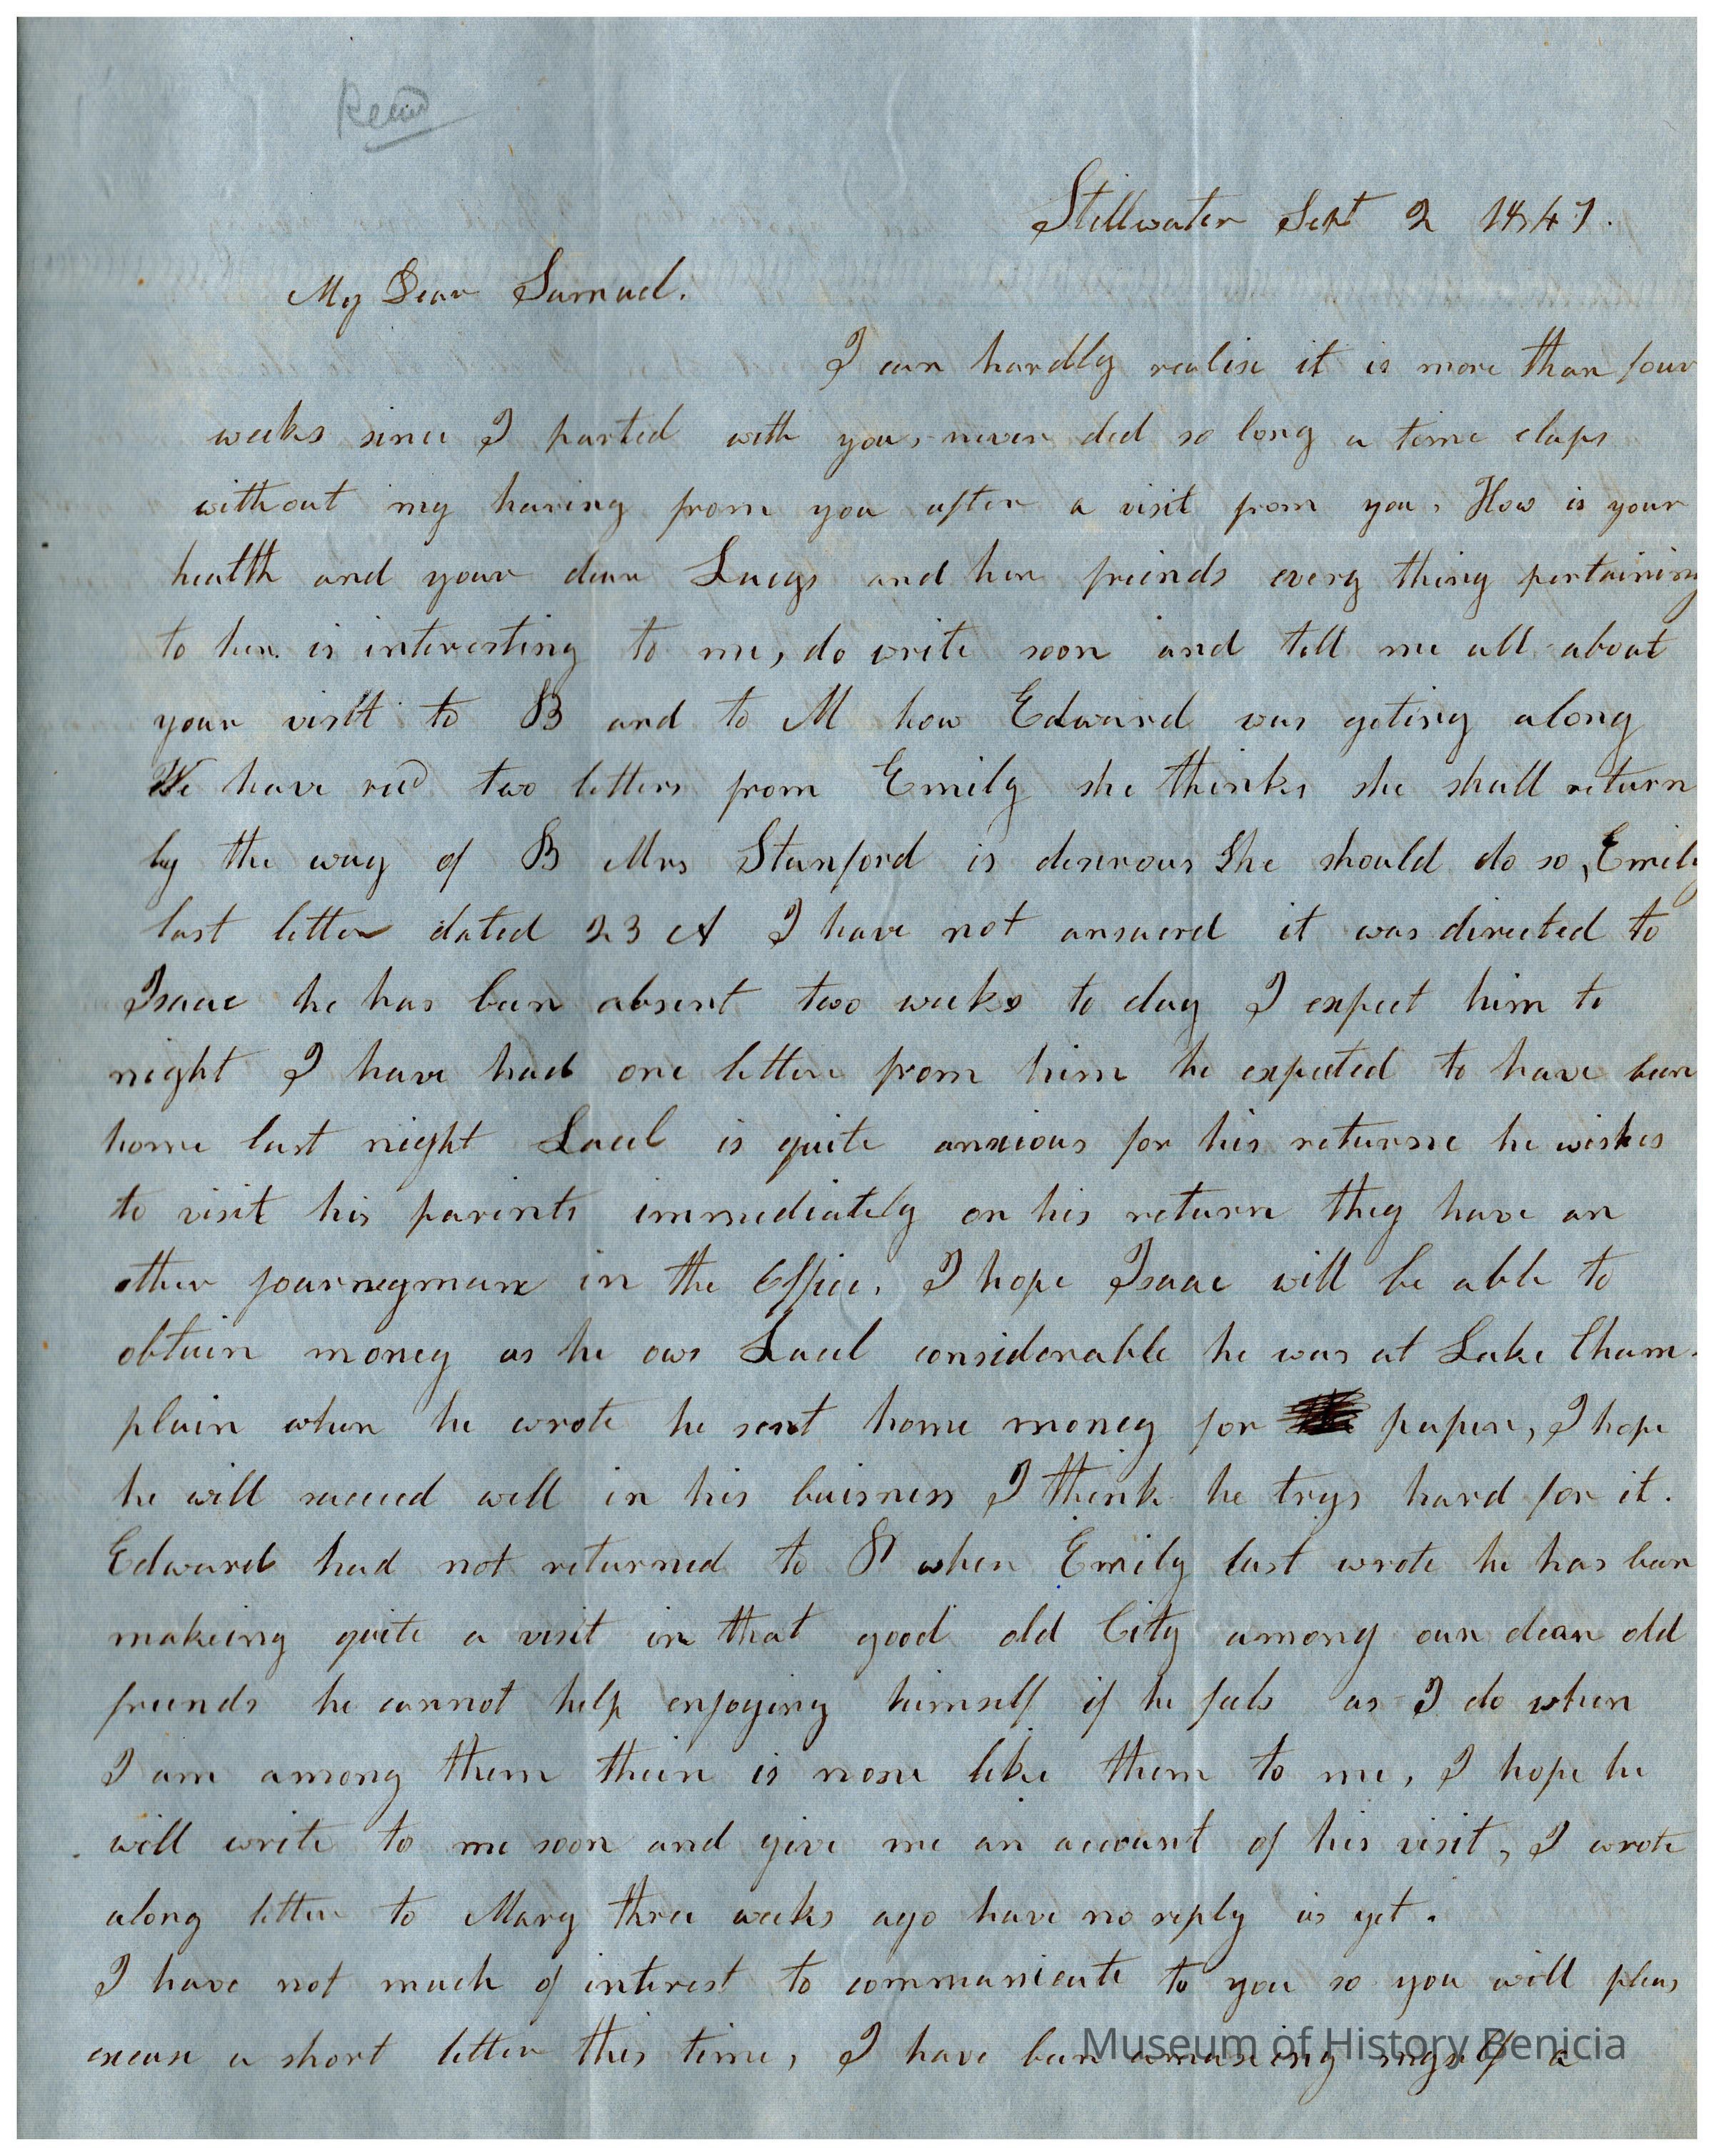 Recd
Stillwater Sept 2 1847.
My Dear Samuel.
I can hardly realise it is more than four
weeks since I parted with you, never did so long a time elaps
without my haring from you after a visit from you, How is your
health and your dear Lucys and her friends every thing pertaining
to her is interesting to me, do write soon and tell me all about
your visit to B and to M how Edward was geting along
We have recd two letters from Emily she thinks she shall return
by the way of B Mrs Stanford is desirous she should do so, Emily
last letter dated 23 A I have not answerd it was directed to
Isaac he has been absent two weeks to day I expect him to
night I have had one letter from him he expected to have been
home last night is quite anxious for his returne he wishes
to visit his parints immediately on his return they have an
other journeyman in the Office, I hope Isaac will be able to
obtain money as he ows considerable he was at Lake Cham-
plain when he wrote he sent home money for paper, I hope
he will succeed well in his buisness I think he trys hard for it.
Edward had not returned to when Emily last wrote he has been
makeing quite a visit in that good old City among our dear old
friends he cannot help enjoying himself if he feels as I do when
I am among them their is none like them to me, I hope he
will write to me soon and give me an account of his visit, I wrote
along letter to Mary three weeks ago have no reply as yet.
I have not much of interest to communicate to you so you will pleas
excuse a short letter this time, I have been amuseing myself a
Museum of History Benicia